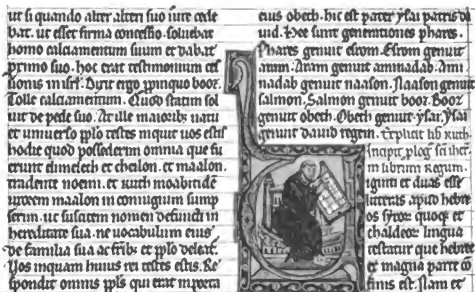 ut si quando alter alteri suo iure cede
bat. ut esset firma concessio. soluebat
homo calciamentum suum et dabat
primo suo. hoc erat testimonium ces
sionis in isrl. Dixit ergo ppinquo booz.
Tolle calciamentum. Quod statim sol
uit de pede suo. At ille maioribus natu
et uniuerso pplo testes inquit uos estis
hodie quod possederim omnia que fu
erunt elimelech et chelon. et maalon.
tradente noemi. et ruth moabiten
uxorem maalon in coniugium sump
serim. ut suscitem nomen defuncti in
hereditate sua. ne uocabulum eius
de familia sua ac fribz et pplo deleat.
Uos inquam huius rei testes estis. Re
spondit omnis pplus qui erat in porta
eius obeth. hic est pater ysai patris da
uid. Hee sunt generationes phares.
Phares genuit esrom. Esrom genuit
aram. Aram genuit aminadab. Ami
nadab genuit naason. Naason genuit
salmon. Salmon genuit booz. Booz
genuit obeth. Obeth genuit ysai. Ysai
genuit dauid regem. Explicit lib ruth
Incipit plog sci iher
in librum Regum.
iginti et duas esse
litteras apud hebre
os syroz quoqz et
chaldeoz lingua
testatur que hebre
e magna parte co
finis est. Nam et